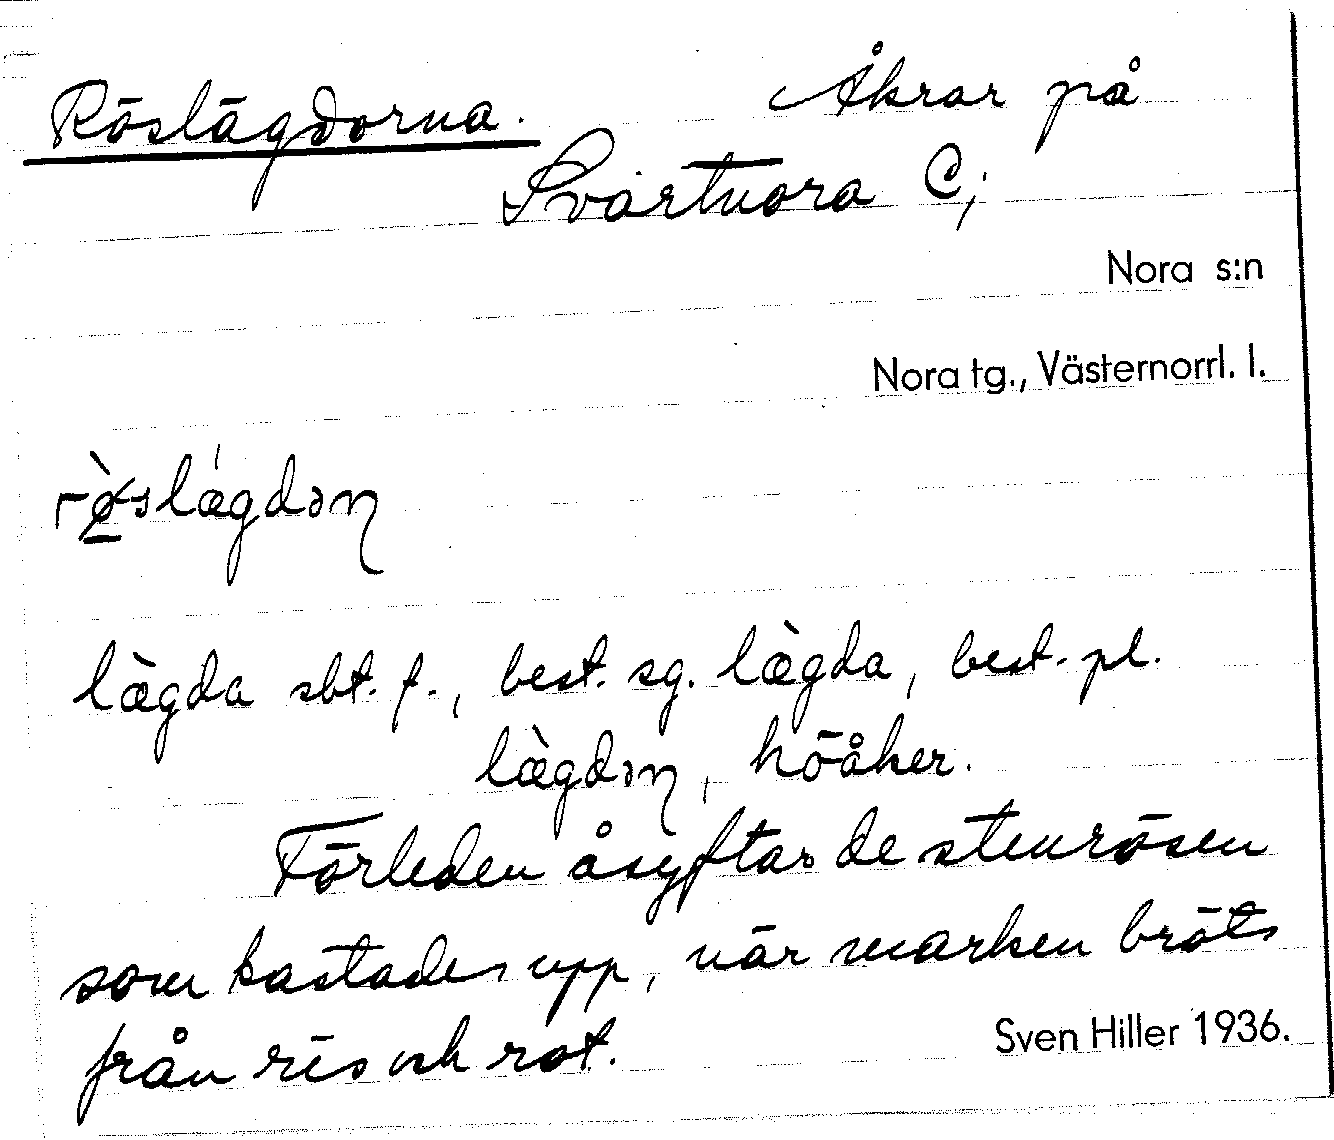 Röslägdorna. Åkrar på
Svartnora C;
Nora s:n
Nora tg., Västernorrl. l.
rø̀slægdəɳ
lægda sbt. f., best. sg. lægda, best. pl.
lægdəɳ, höåker.
Förleden åsyftar de stenrösen
som kastades upp, när marken bröts
från ris och rot.
Sven Hiller 1936.